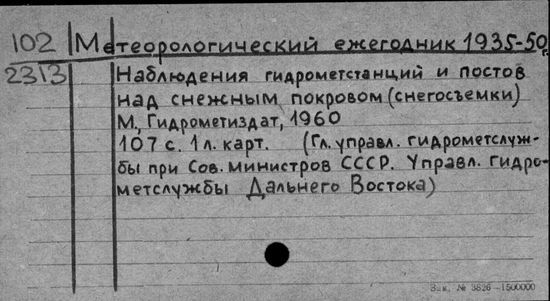 102 Метеорологический ежегодник 1935-50г.
2313 Наблюдения гидрометстанций и постов
над снежным покровом (снегосъемки)
М., Гидрометиздат, 1960
107 с. 1 л. карт. (Гл. управл. гидрометслуж-
бы при Сов. министров СССР. Управл. гидро-
метслужбы Дальнего Востока)
Зак. № 3826—1500000